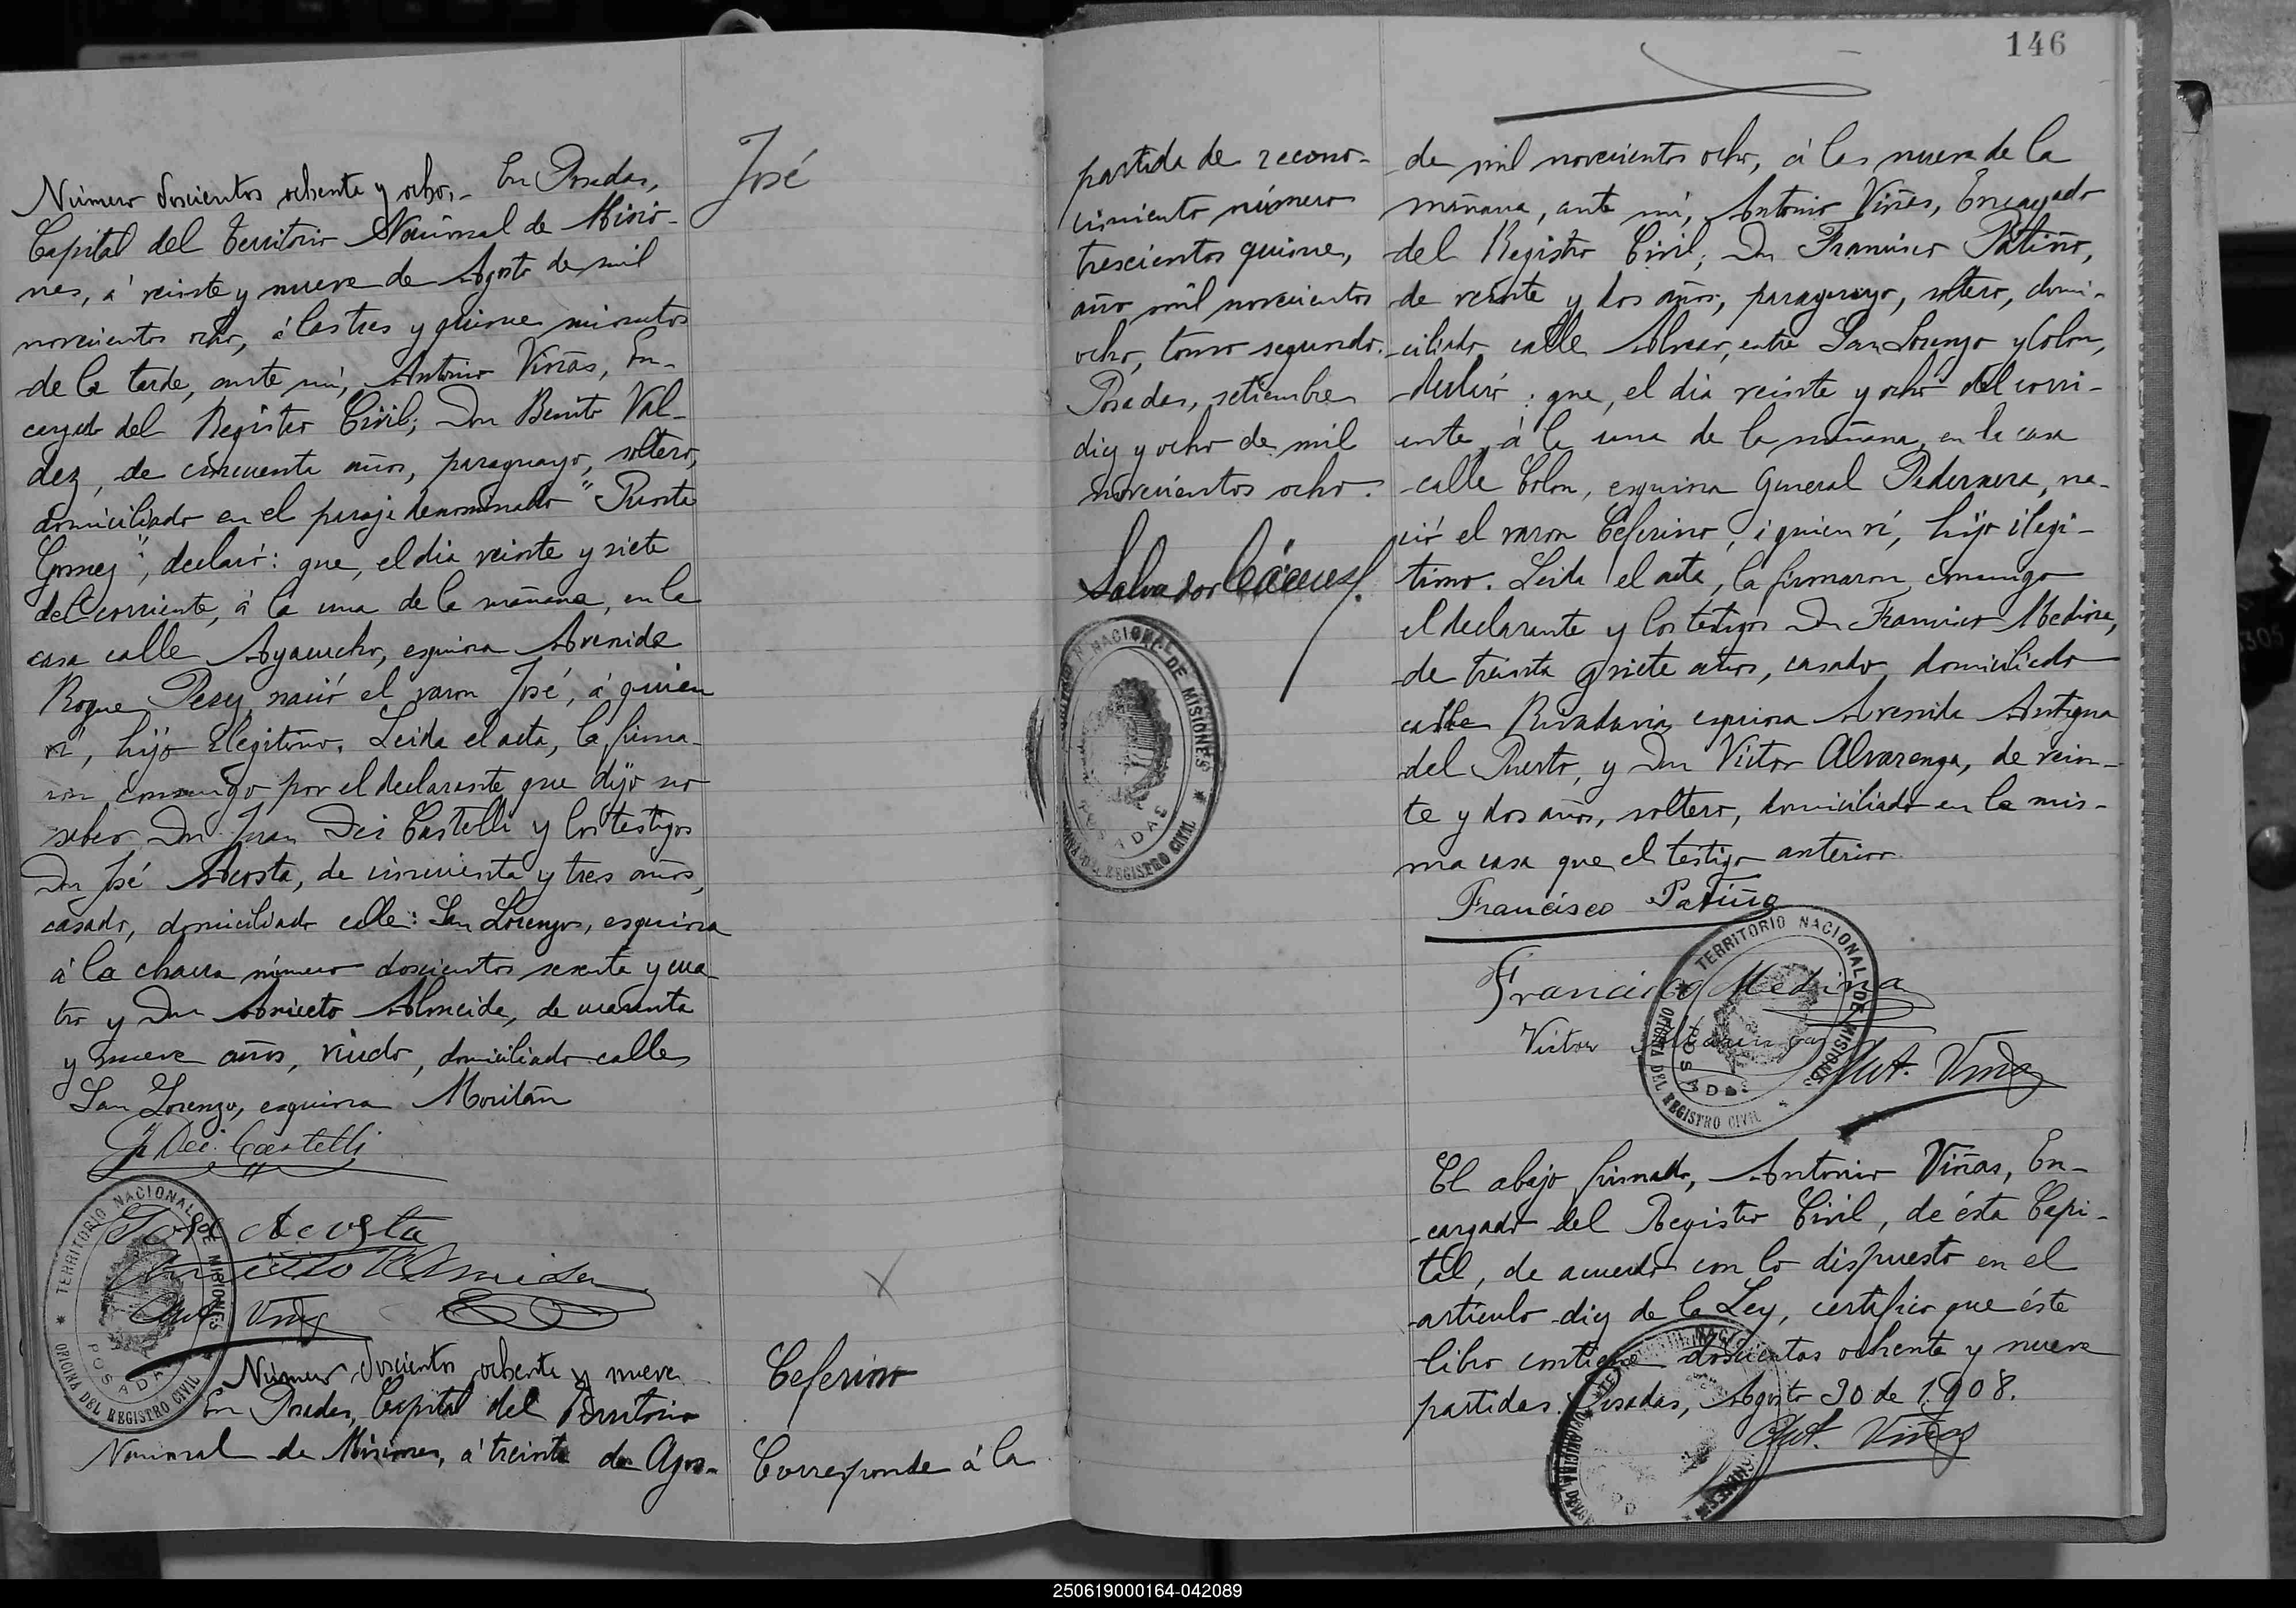 Número doscientos ochenta y ocho.- En Posadas,
Capital del Territorio Nacional de Misio-
nes, á veinte y nueve de Agosto de mil
novecientos ocho, á las tres y quince minutos
de la tarde, ante mí, Antonio Viñas, En-
cargado del Registro Civil; Don Benito Val-
dez, de cincuenta años, paraguayo, soltero,
domiciliado en el paraje denominado "Punta
Gomez", declaró: que, el dia veinte y siete
del corriente, á la una de la mañana, en la
casa calle Ayacucho, esquina Avenida
Roque Perez, nació el varon José, á quien
ví, hijo ilegitimo. Leida el acta, la firma-
ron conmigo por el declarante que dijo no
saber, Don Juan Dei Castelli y los testigos
Don José Acosta, de cincuenta y tres años,
casado, domiciliado calle: San Lorenzo, esquina
á la chacra número doscientos sesenta y cua-
tro y Don Aniceto Almeida, de cuarenta
y nueve años, viudo, domiciliado calle
San Lorenzo, esquina Moritán
J. Dei Castelli
José Acosta
Aniceto Almeida
Ant. Viñas
TERRITORIO NACIONAL DE MISIONES
POSADAS
OFICINA DEL REGISTRO CIVIL
Número doscientos ochenta y nueve
En Posadas, Capital del Territorio
Nacional de Misiones, á treinta de Agos-
José
X
Ceferino
Corresponde á la
146
partida de recono-
cimiento número
trescientos quince,
año mil novecientos
ocho, tomo segundo.
Posadas, setiembre
diez y ocho de mil
novecientos ocho.
Salvador Cáceres
NACIONAL DE MISIONES
POSADAS
OFICINA DEL REGISTRO CIVIL
de mil novecientos ocho, á las nueve de la
mañana, ante mí, Antonio Viñas, Encargado
del Registro Civil; Don Francisco Patiño,
de veinte y dos años, paraguayo, soltero, domi-
ciliado calle Alvear, entre San Lorenzo y Colon,
declaró: que, el dia veinte y ocho del corri-
ente, á la una de la mañana, en la casa
calle Colon, esquina General Pedernera, na-
ció el varon Ceferino, á quien ví, hijo ilegi-
timo. Leida el acta, la firmaron conmigo
el declarante y los testigos Don Francisco Medina,
de treinta y siete años, casado, domiciliado
calle Rivadavia, esquina Avenida Antigua
del Puerto, y Don Victor Alvarenga, de vein-
te y dos años, soltero, domiciliado en la mis-
ma casa que el testigo anterior.
Francisco Patiño
Francisco Medina
Victor Alvarenga
Ant. Viñas
TERRITORIO NACIONAL DE MISIONES
POSADAS
OFICINA DEL REGISTRO CIVIL
El abajo firmado, Antonio Viñas, En-
cargado del Registro Civil, de ésta Capi-
tal, de acuerdo con lo dispuesto en el
artículo diez de la Ley, certifico que éste
libro contiene doscientas ochenta y nueve
partidas. Posadas, Agosto 30 de 1.908.
Ant. Viñas
250619000164-042089